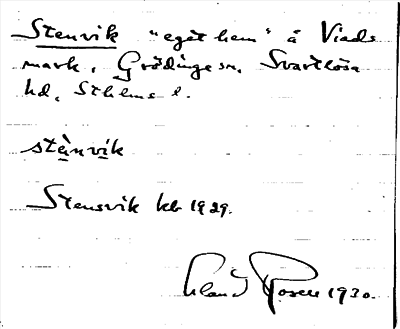 Stenvik "eget hem" å Viads
mark, Grödinge sn, Svartlösa
hd, Sthlms l.
stènvik
Stensvik kb 1929.
Rosell 1930.